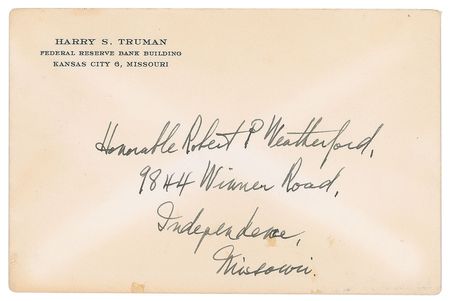 HARRY S. TRUMAN
FEDERAL RESERVE BANK BUILDING
KANSAS CITY 6, MISSOURI
Honorable Robert P Weatherford,
9844 Winner Road,
Independence,
Missouri.